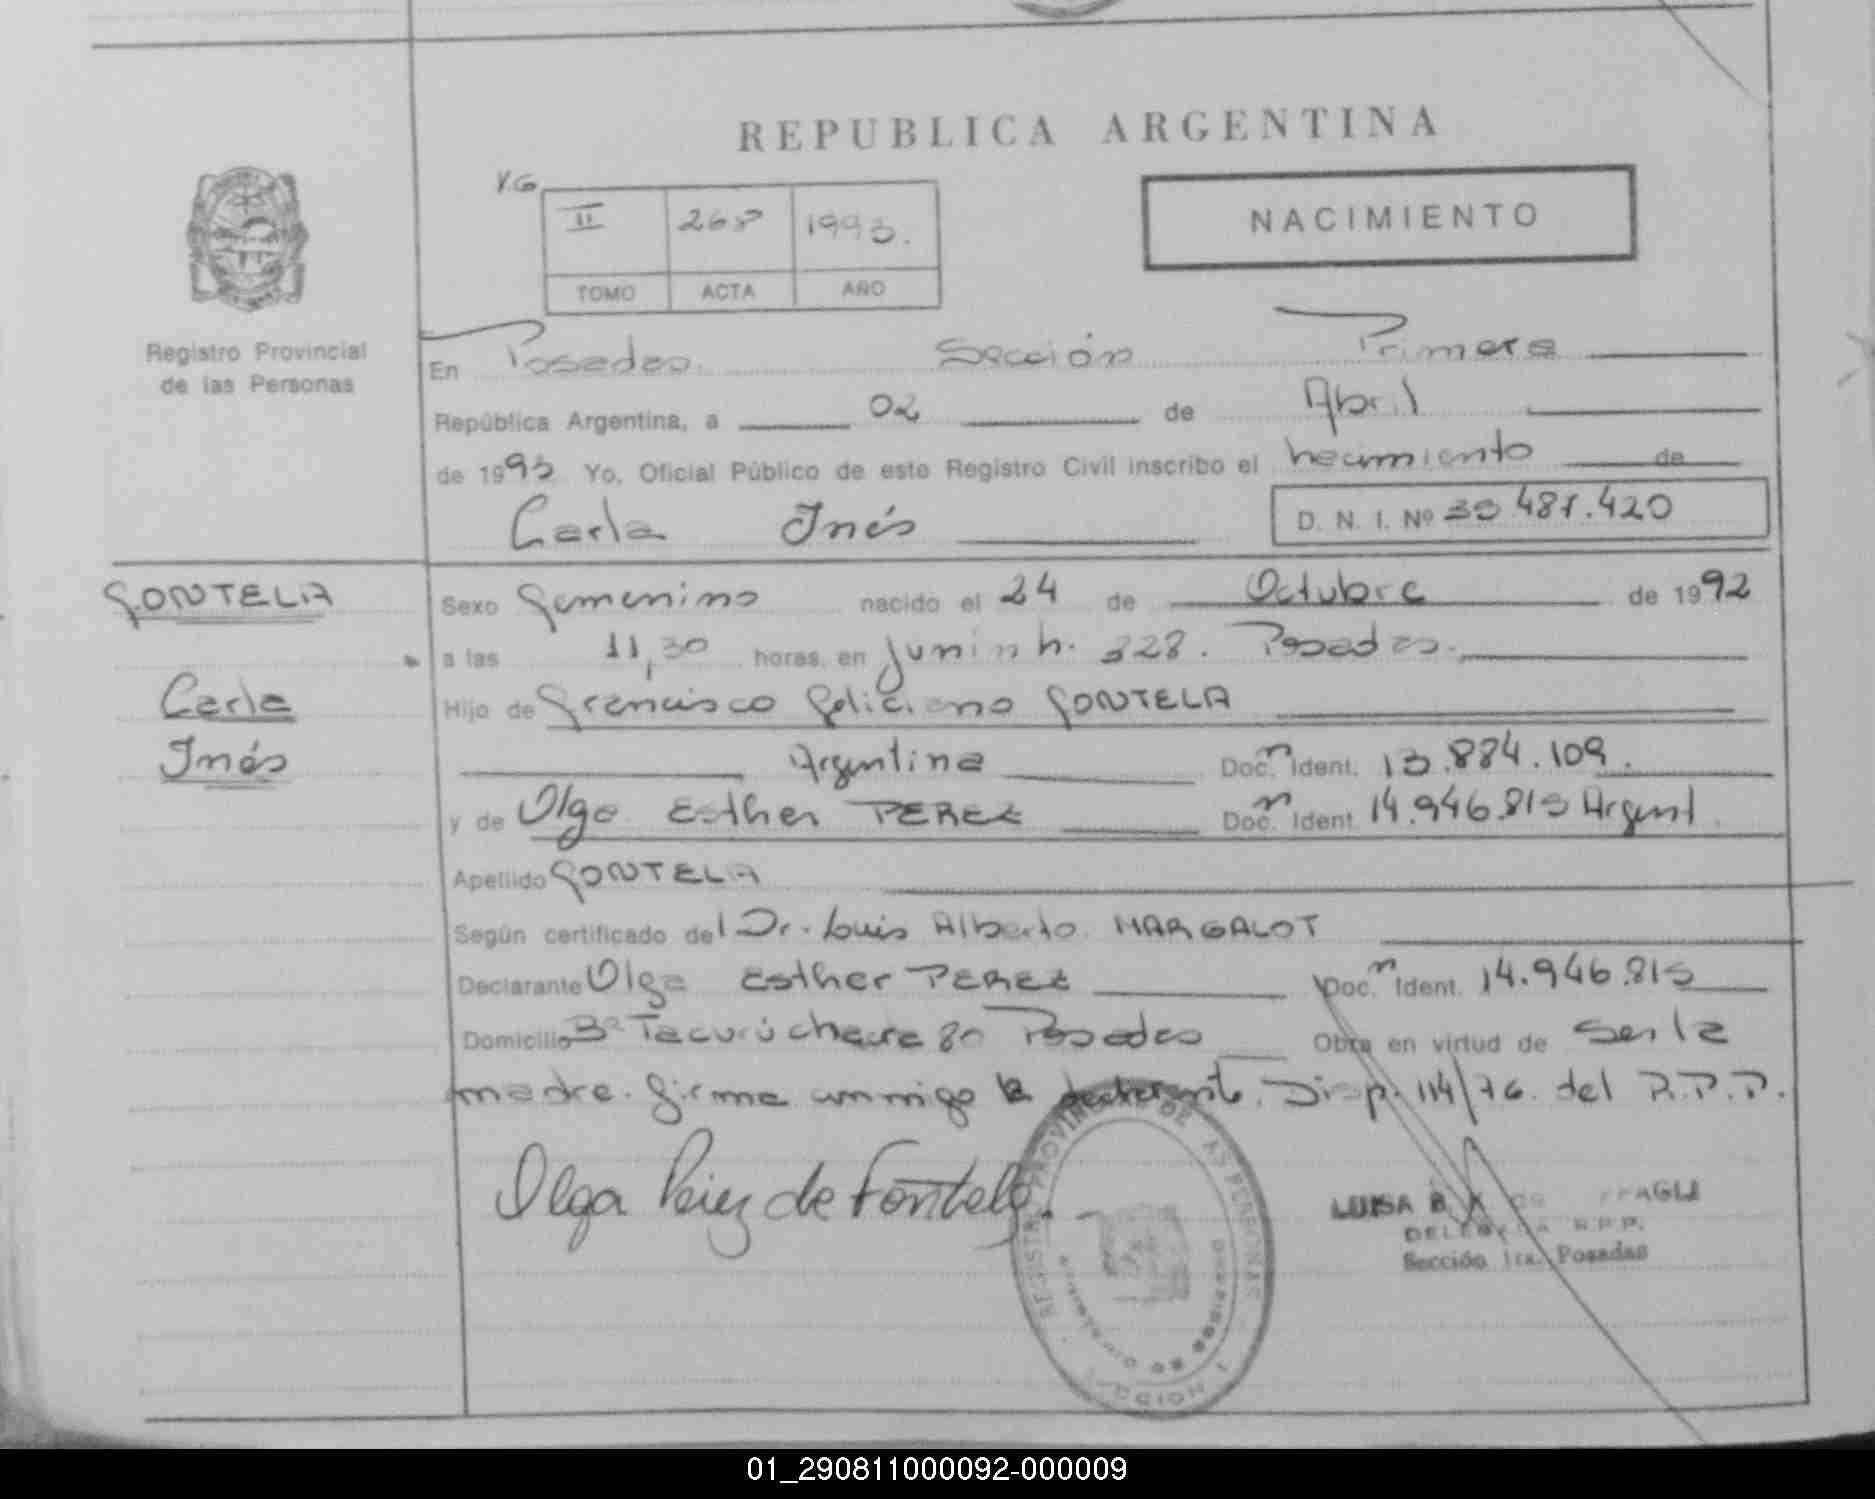 REPUBLICA ARGENTINA
V.G
II 268 1993.
TOMO ACTA AÑO
NACIMIENTO
Registro Provincial
de las Personas
En Posadas. Sección Primera
República Argentina, a 02 de Abril
de 1993 Yo, Oficial Público de este Registro Civil inscribo el nacimiento de
Carla Inés
D. N. I. Nº 487.420
FONTELA
Carla
Inés
Sexo Femenino nacido el 24 de Octubre de 1992
a las 11,30 horas, en Junín n. 328. Posadas.
Hijo de Francisco Feliciano FONTELA
Argentina Doc. Ident. 13.884.109.
y de Olga Esther PEREZ Doc. Ident. 14.946.815 Argent
Apellido FONTELA
Según certificado del Dr. Luis Alberto MARGALOT
Declarante Olga Esther PEREZ Doc. Ident. 14.946.815
Domicilio Bº Tacurú chacra 80 Posadas Obra en virtud de ser la
madre. Firma conmigo la declarante. Disp. 114/76. del R.P.P.
Olga Perez de Fontela.
REGISTRO PROVINCIAL DE LAS PERSONAS
LUISA B.
DELEGADA R.P.P.
Sección 1ra. Posadas
01_290811000092-000009